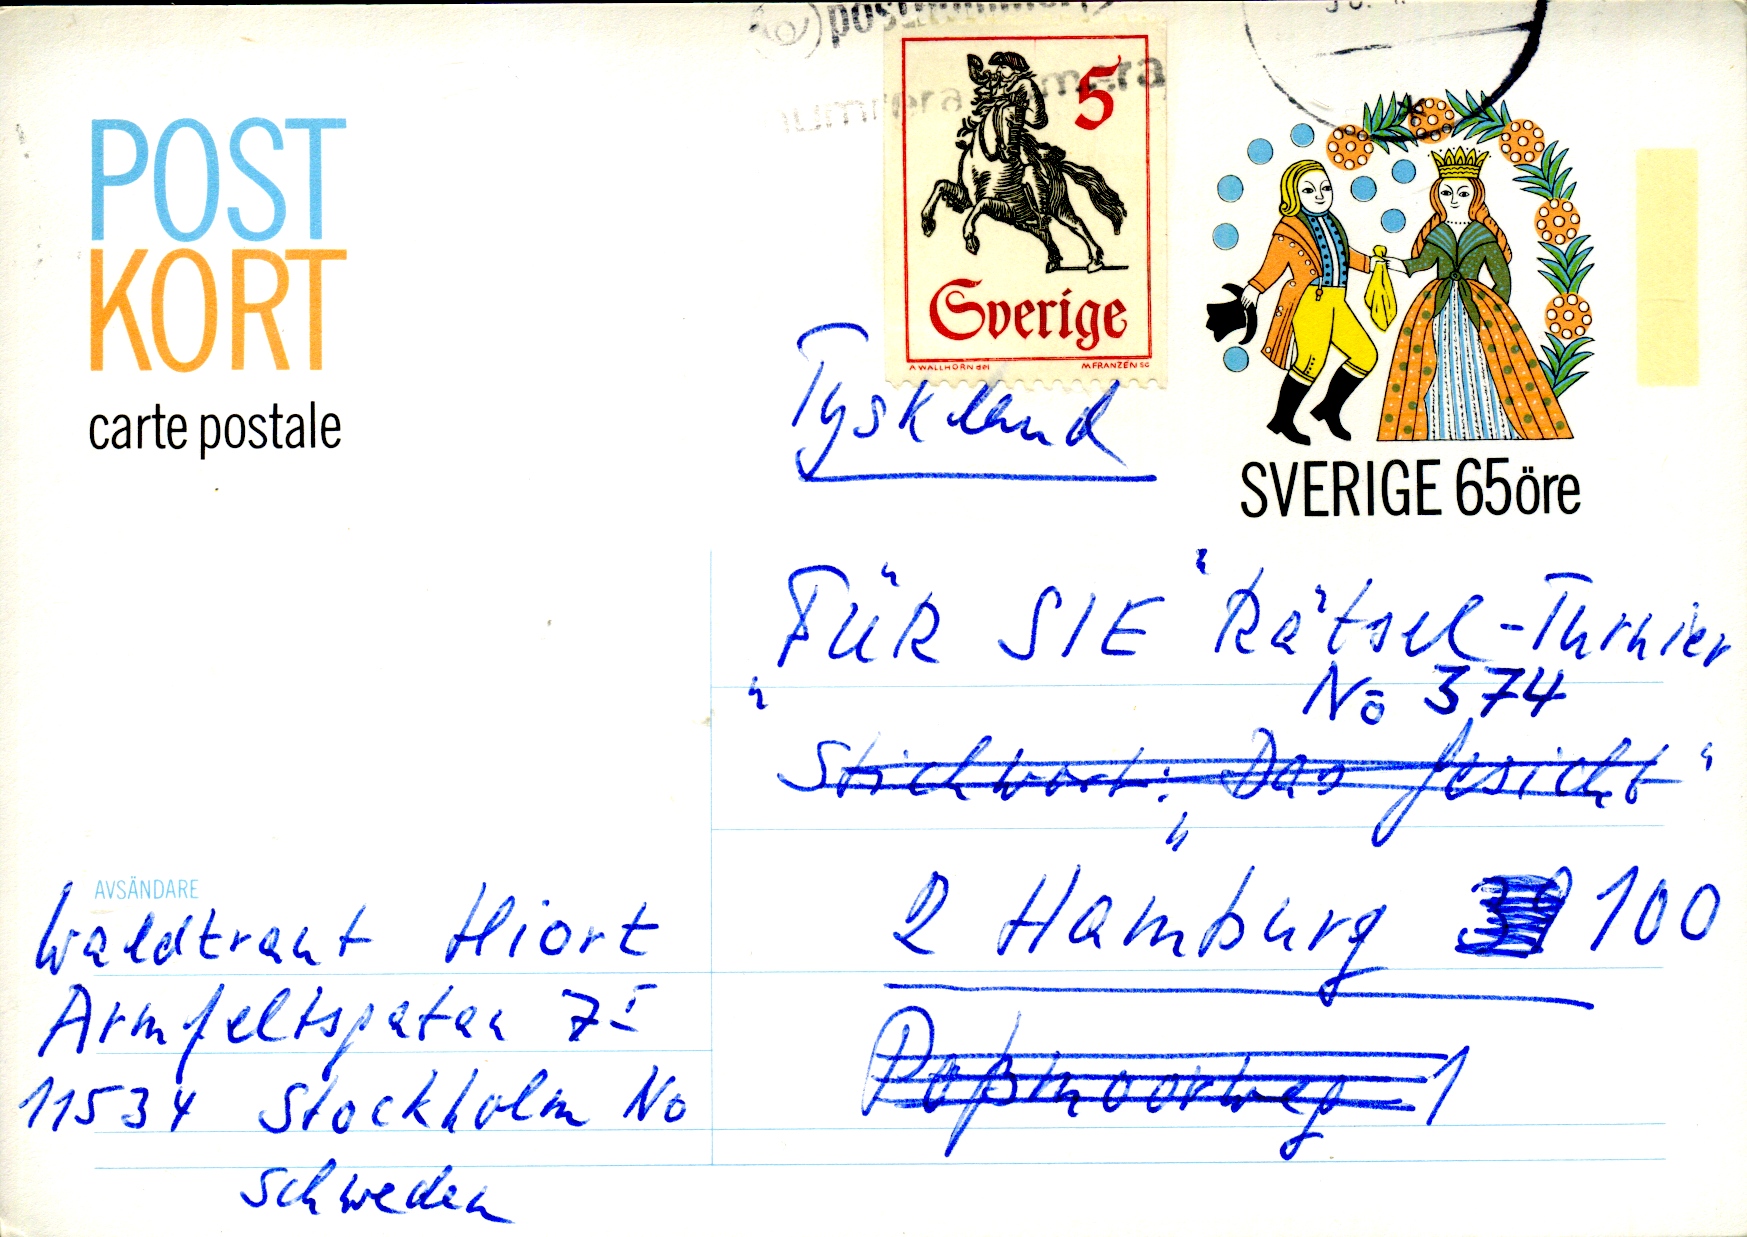 postnummer
numrera numrera
POST
KORT
carte postale
5
Sverige
A WALLHORN del M FRANZEN SC
SVERIGE 65öre
Tyskland
"FÜR SIE" Rätsel-Turnier
No 374
"Stichwort: "Das Gesicht"
2 Hamburg 39 100
Poßmoorweg 1
AVSÄNDARE
Waldtraut Hiort
Armfeltsgatan 7 I
11534 Stockholm No
Schweden